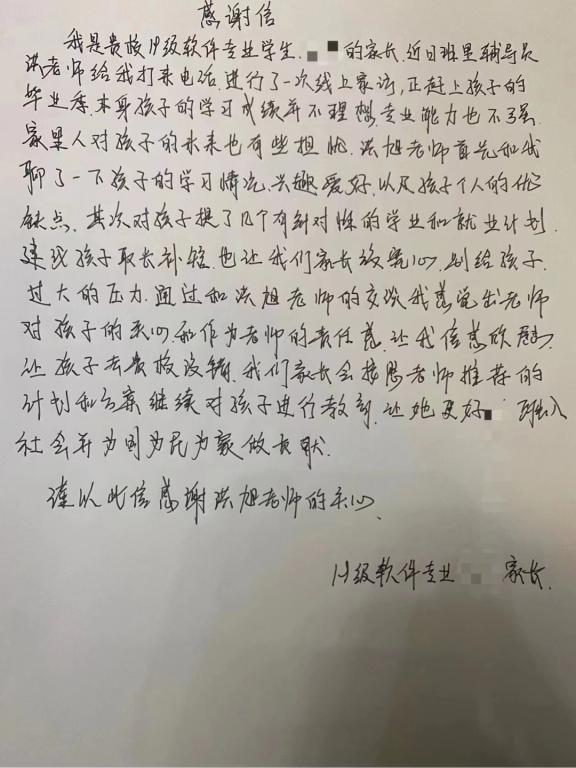 感谢信
我是贵校19级软件专业学生 的家长,近日班里辅导员
洪老师给我打来电话,进行了一次线上家访,正赶上孩子的
毕业季,本身孩子的学习成绩并不理想,专业能力也不强,
家里人对孩子的未来也有些担忧。洪旭老师首先和我
聊了一下孩子的学习情况,兴趣爱好,以及孩子个人的优
缺点。其次对孩子提了几个有针对性的学业和就业计划,
建议孩子取长补短,也让我们家长放宽心,别给孩子
过大的压力。通过和洪旭老师的交谈我感觉出老师
对孩子的关心和作为老师的责任感,让我倍感欣慰,
让孩子去贵校没错,我们家长会按照老师推荐的
计划和方案继续对孩子进行教育,让她更好 融入
社会并为国为民为家做贡献。
谨以此信感谢洪旭老师的关心。
19级软件专业 家长.